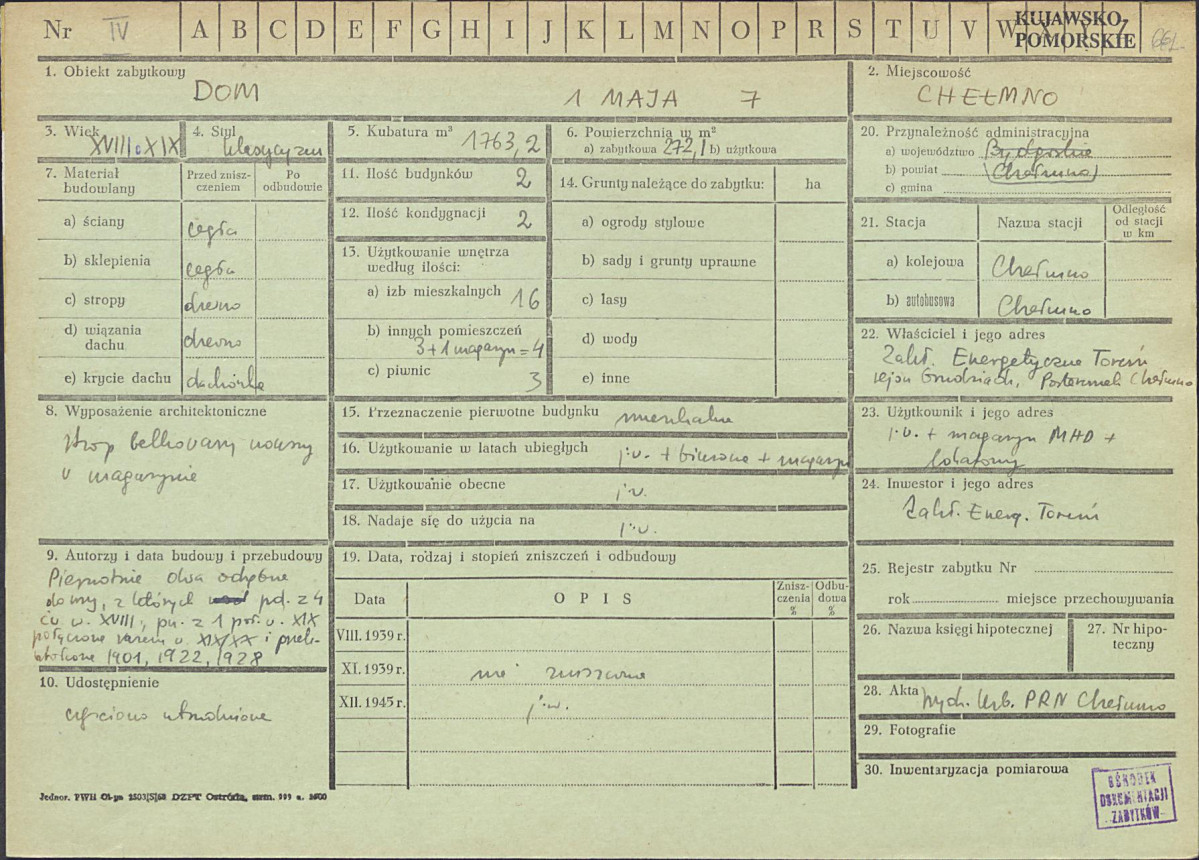 Nr IV A B C D E F G H I J K L M N O P R S T U V W
KUJAWSKO-
POMORSKIE
1. Obiekt zabytkowy
DOM 1 MAJA 7
2. Miejscowość
CHEŁMNO
3. Wiek
XVIII i XIX
4. Styl
klasycyzm
5. Kubatura m³ 1763,2
6. Powierzchnia w m²
a) zabytkowa 272,1 b) użytkowa
20. Przynależność administracyjna
a) województwo Bydgoskie
b) powiat Chełmno
c) gmina
7. Materiał
budowlany
Przed znisz-
czeniem
Po
odbudowie
a) ściany cegła
b) sklepienia cegła
c) stropy drewno
d) wiązania
dachu drewno
e) krycie dachu dachówka
11. Ilość budynków 2
12. Ilość kondygnacji 2
13. Użytkowanie wnętrza
według ilości:
a) izb mieszkalnych 16
b) innych pomieszczeń
3+1 magazyn = 4
c) piwnic 3
14. Grunty należące do zabytku: ha
a) ogrody stylowe
b) sady i grunty uprawne
c) lasy
d) wody
e) inne
21. Stacja Nazwa stacji
Odległość
od stacji
w km
a) kolejowa Chełmno
b) autobusowa Chełmno
22. Właściciel i jego adres
Zakł. Energetyczne Toruń
rejon Grudziądz, Posterunek Chełmno
8. Wyposażenie architektoniczne
strop belkowany nośny
w magazynie
15. Przeznaczenie pierwotne budynku mieszkalne
16. Użytkowanie w latach ubiegłych j.w. + biurowe + magazyn
17. Użytkowanie obecne j.w.
18. Nadaje się do użycia na j.w.
23. Użytkownik i jego adres
j.w. + magazyn MHD +
lokatorzy
24. Inwestor i jego adres
Zakł. Energ. Toruń
9. Autorzy i data budowy i przebudowy
Pierwotnie dwa odrębne
domy, z których pd. z 4
ćw w. XVIII, pn. z 1 poł. w. XIX
połączone razem w. XIX/XX i przek-
ształcone 1901, 1922, 1928
19. Data, rodzaj i stopień zniszczeń i odbudowy
Data OPIS
Znisz-
czenia
%
Odbu-
dowa
%
VIII. 1939 r.
XI. 1939 r. nie zniszczone
XII. 1945 r. j.w.
25. Rejestr zabytku Nr
rok miejsce przechowywania
26. Nazwa księgi hipotecznej
27. Nr hipo-
teczny
10. Udostępnienie
częściowo utrudnione
28. Akta Wydz. Urb. PRN Chełmno
29. Fotografie
30. Inwentaryzacja pomiarowa
OŚRODEK
DOKUMENTACJI
ZABYTKÓW